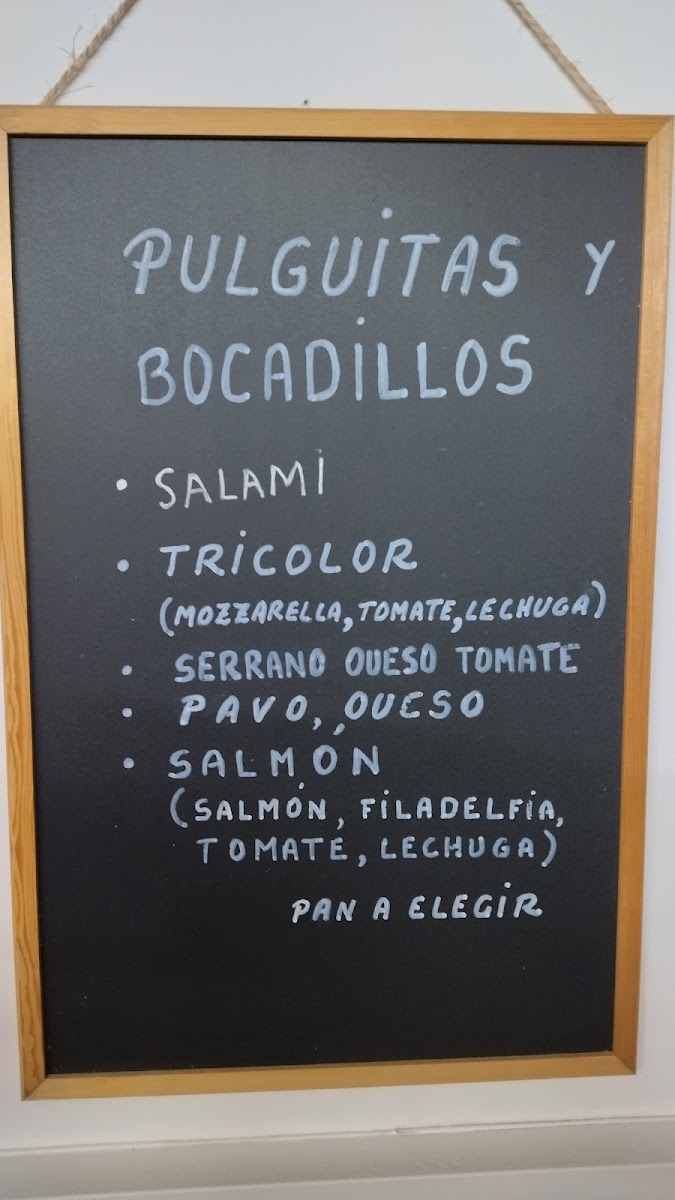 PULGUITAS Y
BOCADILLOS
• SALAMI
• TRICOLOR
(MOZZARELLA, TOMATE, LECHUGA)
• SERRANO QUESO TOMATE
• PAVO, QUESO
• SALMÓN
(SALMÓN, FILADELFIA,
TOMATE, LECHUGA)
PAN A ELEGIR